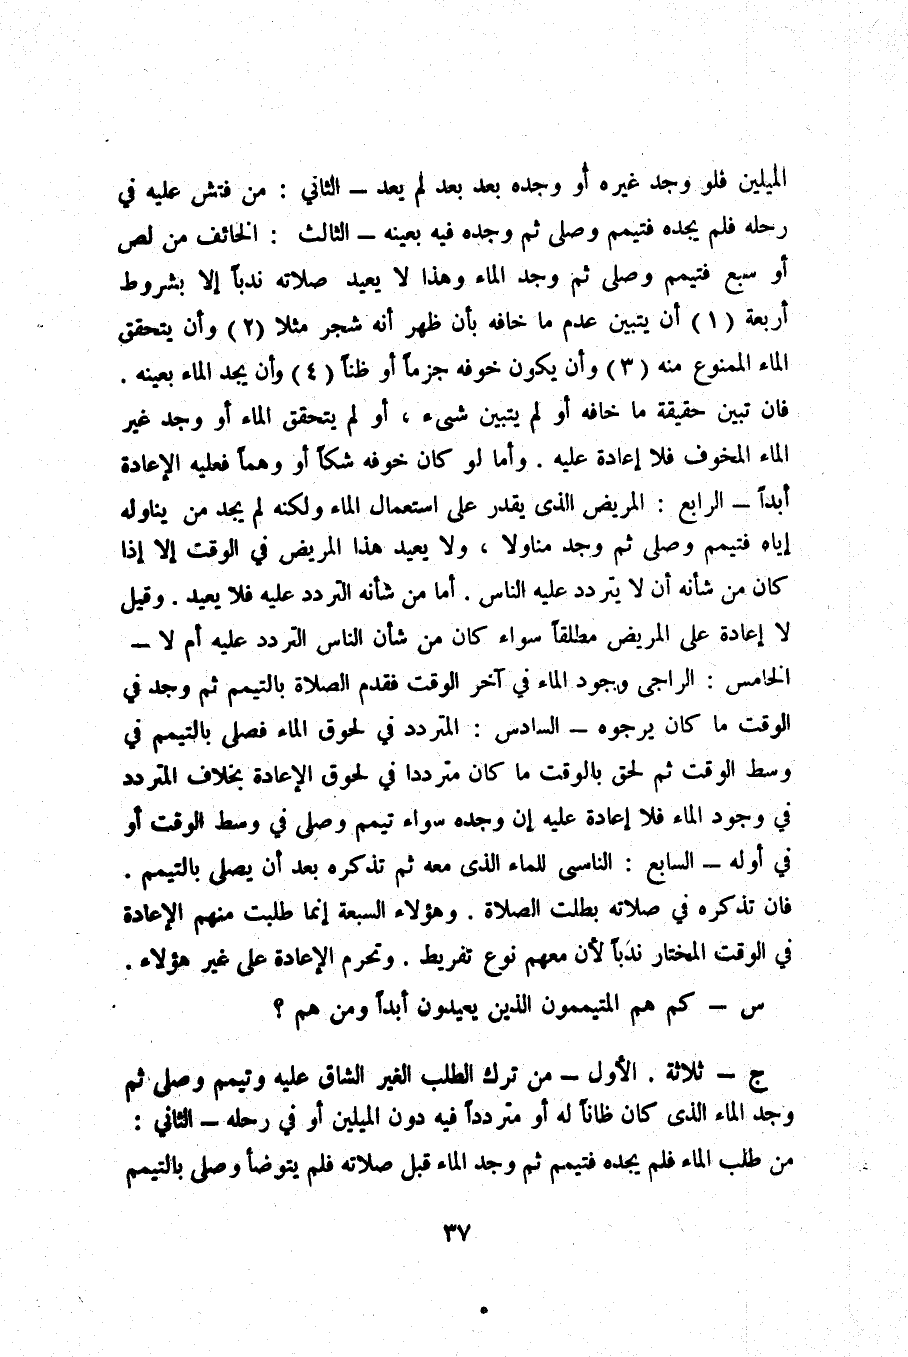 الميلين فلو وجد غيره أو وجده بعد بعد لم يعد – الثاني : من فتش عليه في
رحله فلم يجده فتيمم وصلى ثم وجده فيه بعينه – الثالث : الخائف من لص
أو سبع فتيمم وصلى ثم وجد الماء وهذا لا يعيد صلاته ندباً إلا بشروط
أربعة (١) أن يتبين عدم ما خافه بأن ظهر أنه شجر مثلا (٢) وأن يتحقق
الماء الممنوع منه (٣) وأن يكون خوفه جزماً أو ظناً (٤) وأن يجد الماء بعينه .
فان تبين حقيقة ما خافه أو لم يتبين شىء ، أو لم يتحقق الماء أو وجد غير
الماء المخوف فلا إعادة عليه . وأما لو كان خوفه شكاً أو وهماً فعليه الإعادة
أبداً – الرابع : المريض الذى يقدر على استعمال الماء ولكنه لم يجد من يناوله
إياه فتيمم وصلى ثم وجد مناولا ، ولا يعيد هذا المريض في الوقت إلا إذا
كان من شأنه أن لا يتردد عليه الناس . أما من شأنه التردد عليه فلا يعيد . وقيل
لا إعادة على المريض مطلقاً سواء كان من شأن الناس التردد عليه أم لا –
الخامس : الراجى وجود الماء في آخر الوقت فقدم الصلاة بالتيمم ثم وجد في
الوقت ما كان يرجوه – السادس : المتردد في لحوق الماء فصلى بالتيمم في
وسط الوقت ثم لحق بالوقت ما كان مترددا في لحوق الإعادة بخلاف المتردد
في وجود الماء فلا إعادة عليه إن وجده سواء تيمم وصلى في وسط الوقت أو
في أوله – السابع : الناسى للماء الذى معه ثم تذكره بعد أن يصلى بالتيمم .
فان تذكره في صلاته بطلت الصلاة . وهؤلاء السبعة إنما طلبت منهم الإعادة
في الوقت المختار ندباً لأن معهم نوع تفريط . وتحرم الإعادة على غير هؤلاء .
س – كم هم المتيممون الذين يعيدون أبداً ومن هم ؟
ج – ثلاثة . الأول – من ترك الطلب الغير الشاق عليه وتيمم وصلى ثم
وجد الماء الذى كان ظاناً له أو متردداً فيه دون الميلين أو في رحله – الثاني :
من طلب الماء فلم يجده فتيمم ثم وجد الماء قبل صلاته فلم يتوضأ وصلى بالتيمم
٣٧